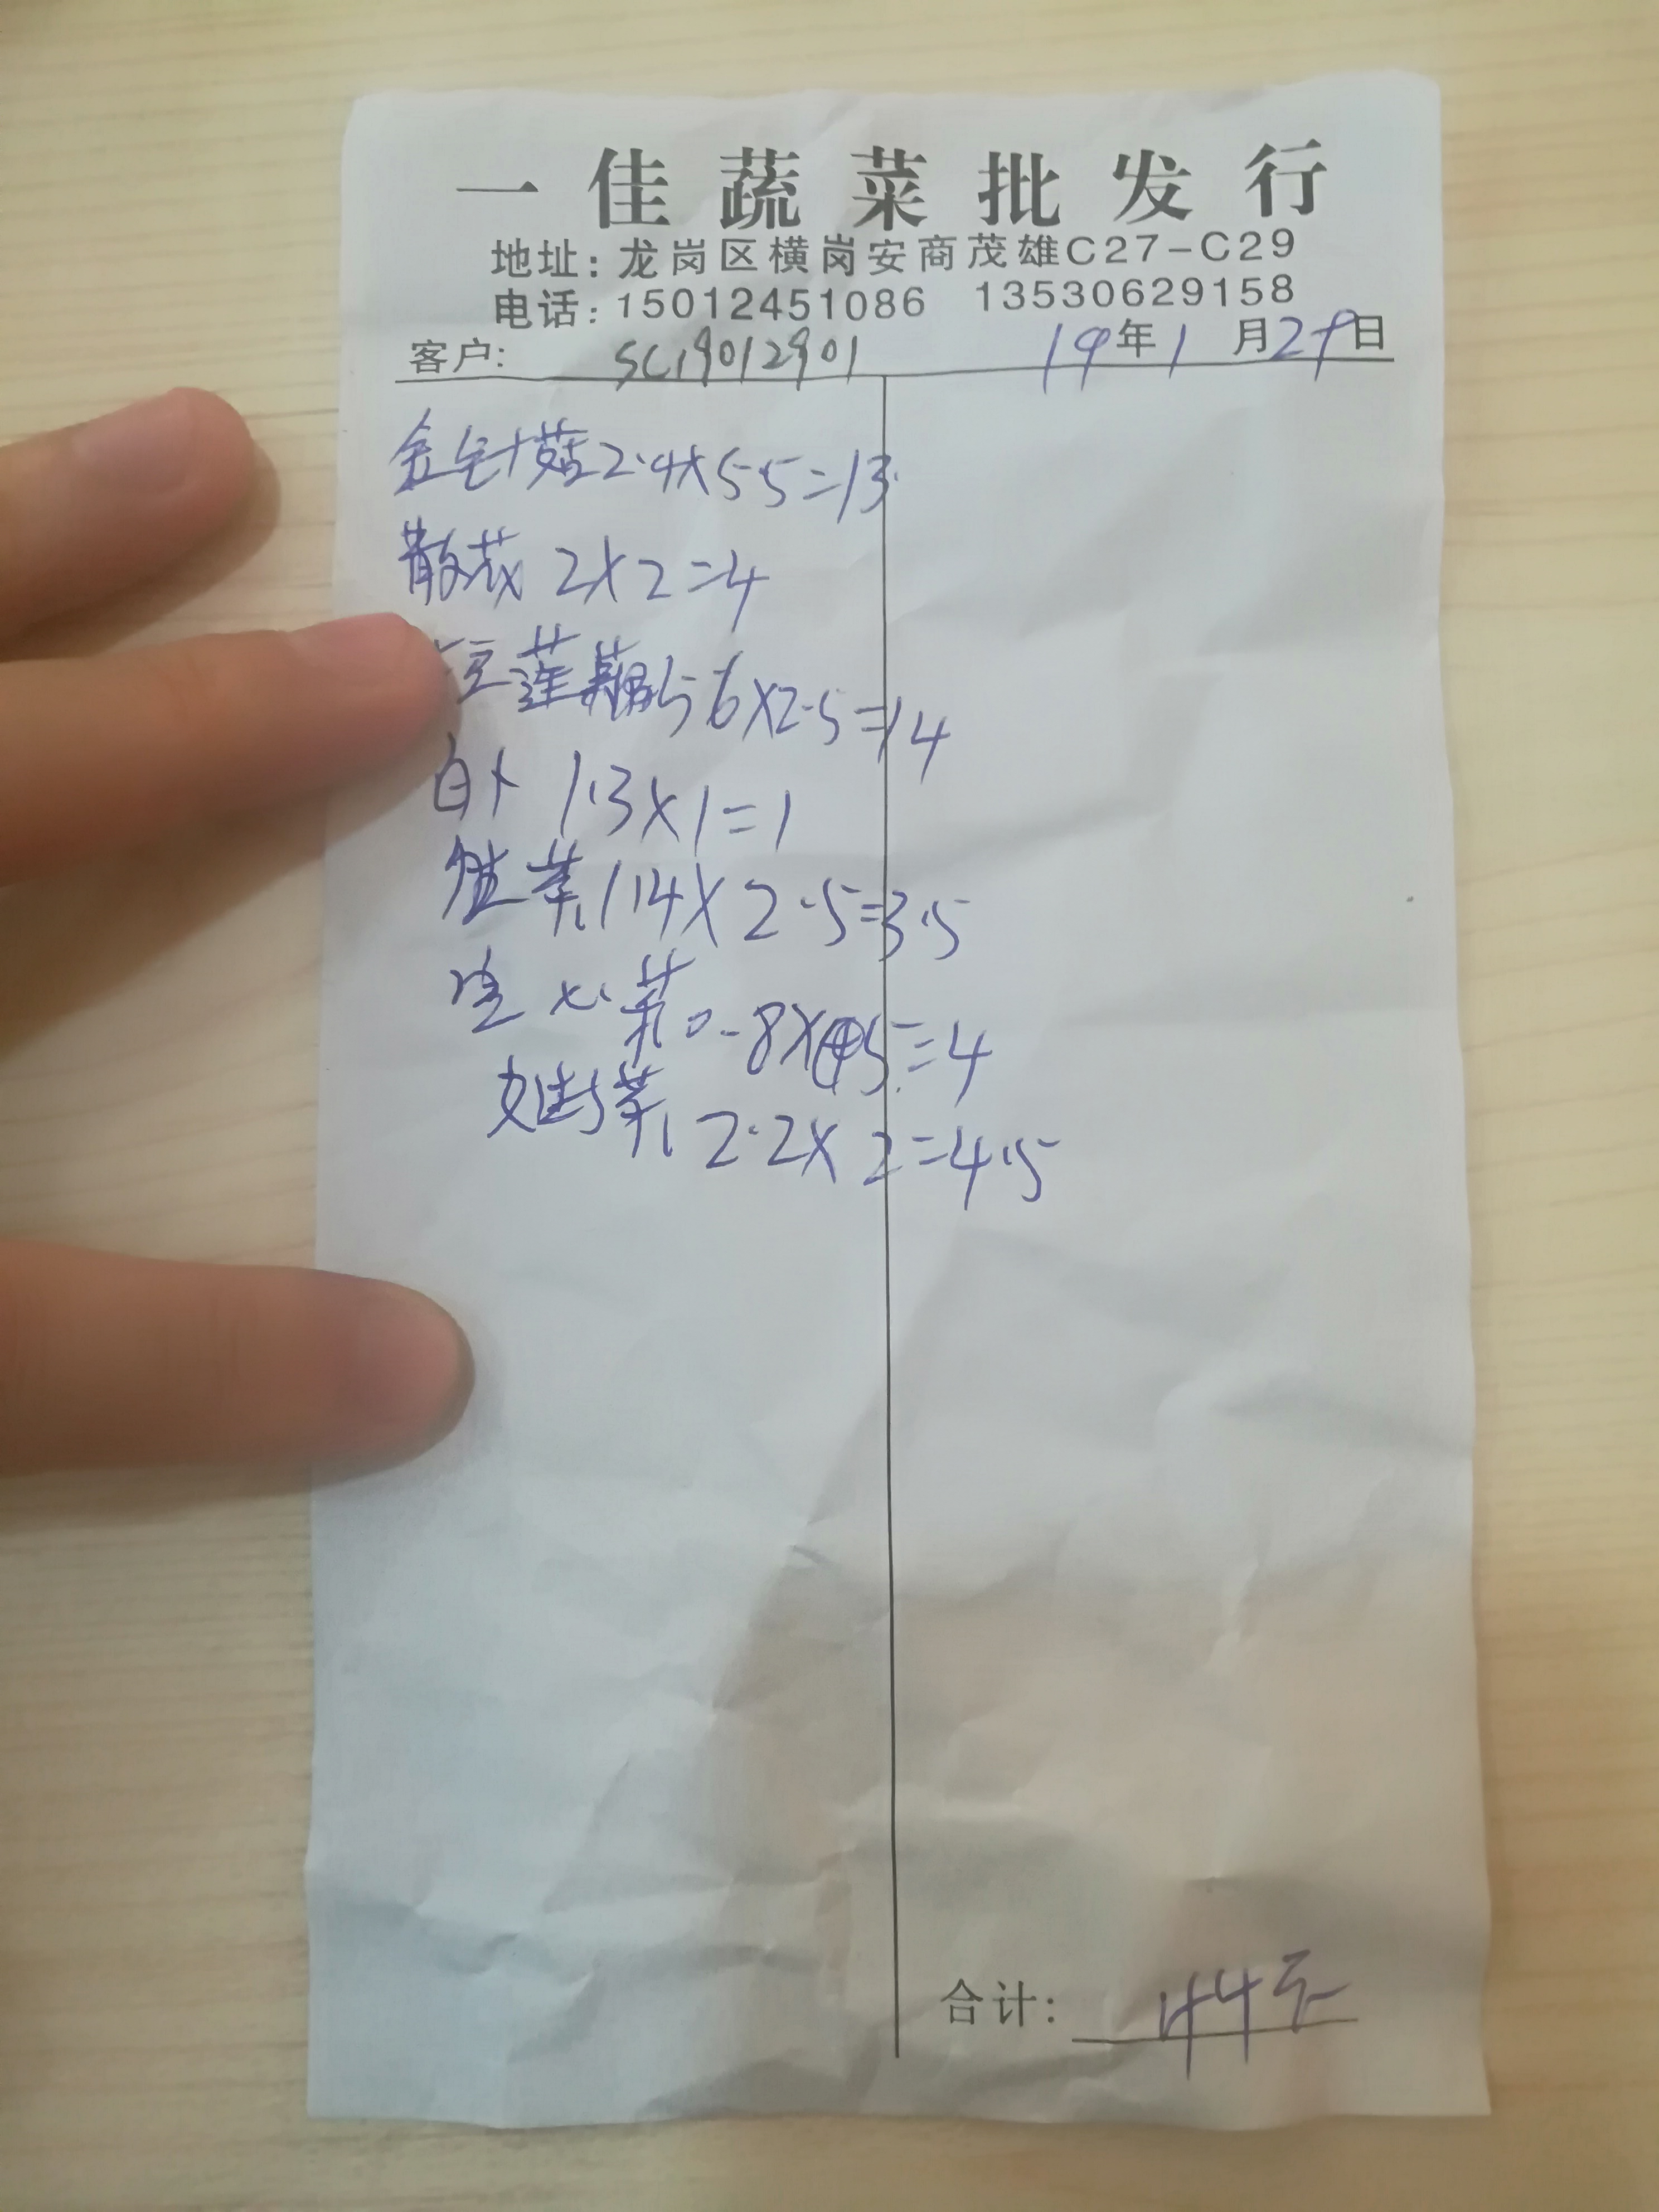 一佳蔬菜批发行
地址：龙岗区横岗安商茂雄C27-C29
电话：15012451086 13530629158
客户： SC19012901 19年1月29日
金针菇2.4X5.5=13
散花 2X2=4
莲藕5.6X2.5=14
白卜 1.3X1=1
菜1.4X2.5=3.5
空心菜0.8X5=4
娃菜 2.2X2=4.5
合计： 44元